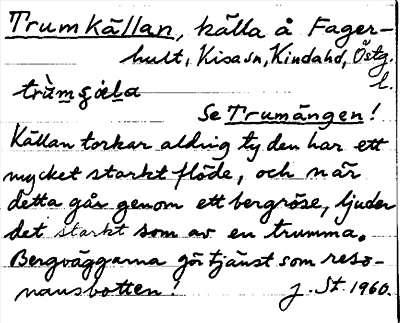 Trumkällan, källa å Fager-
hult, Kisa sn, Kinda hd, Östg.
l.
Se Trumängen!
Källan torkar aldrig ty den har ett
mycket starkt flöde, och när
detta går genom ett bergröse, ljuder
det starkt som av en trumma.
Bergväggarna gör tjänst som reso-
nansbotten!
J. St. 1960.